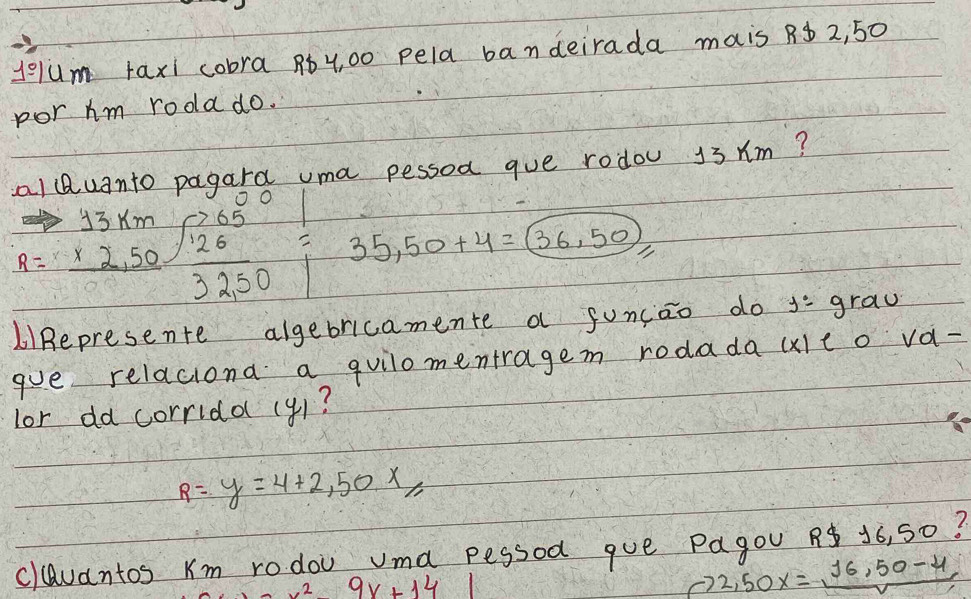 1º) Um taxi cobra R$ 4,00 pela bandeirada mais R$ 2,50
por Km rodado.
a) Quanto pagara uma pessoa que rodou 13 Km ?
00
13 Km → 65
R= x 2,50 126 = 35,50 + 4 = 36,50
32,50
b) Represente algebricamente a função do 1º grau
que relaciona a quilomentragem rodada (x) e o va-
lor da corrida (y)?
R= y = 4 + 2,50 x
c) Quantos Km rodou uma pessoa que pagou R$ 16,50?
x² 9x + 14 → 2,50x = 16,50 - 4